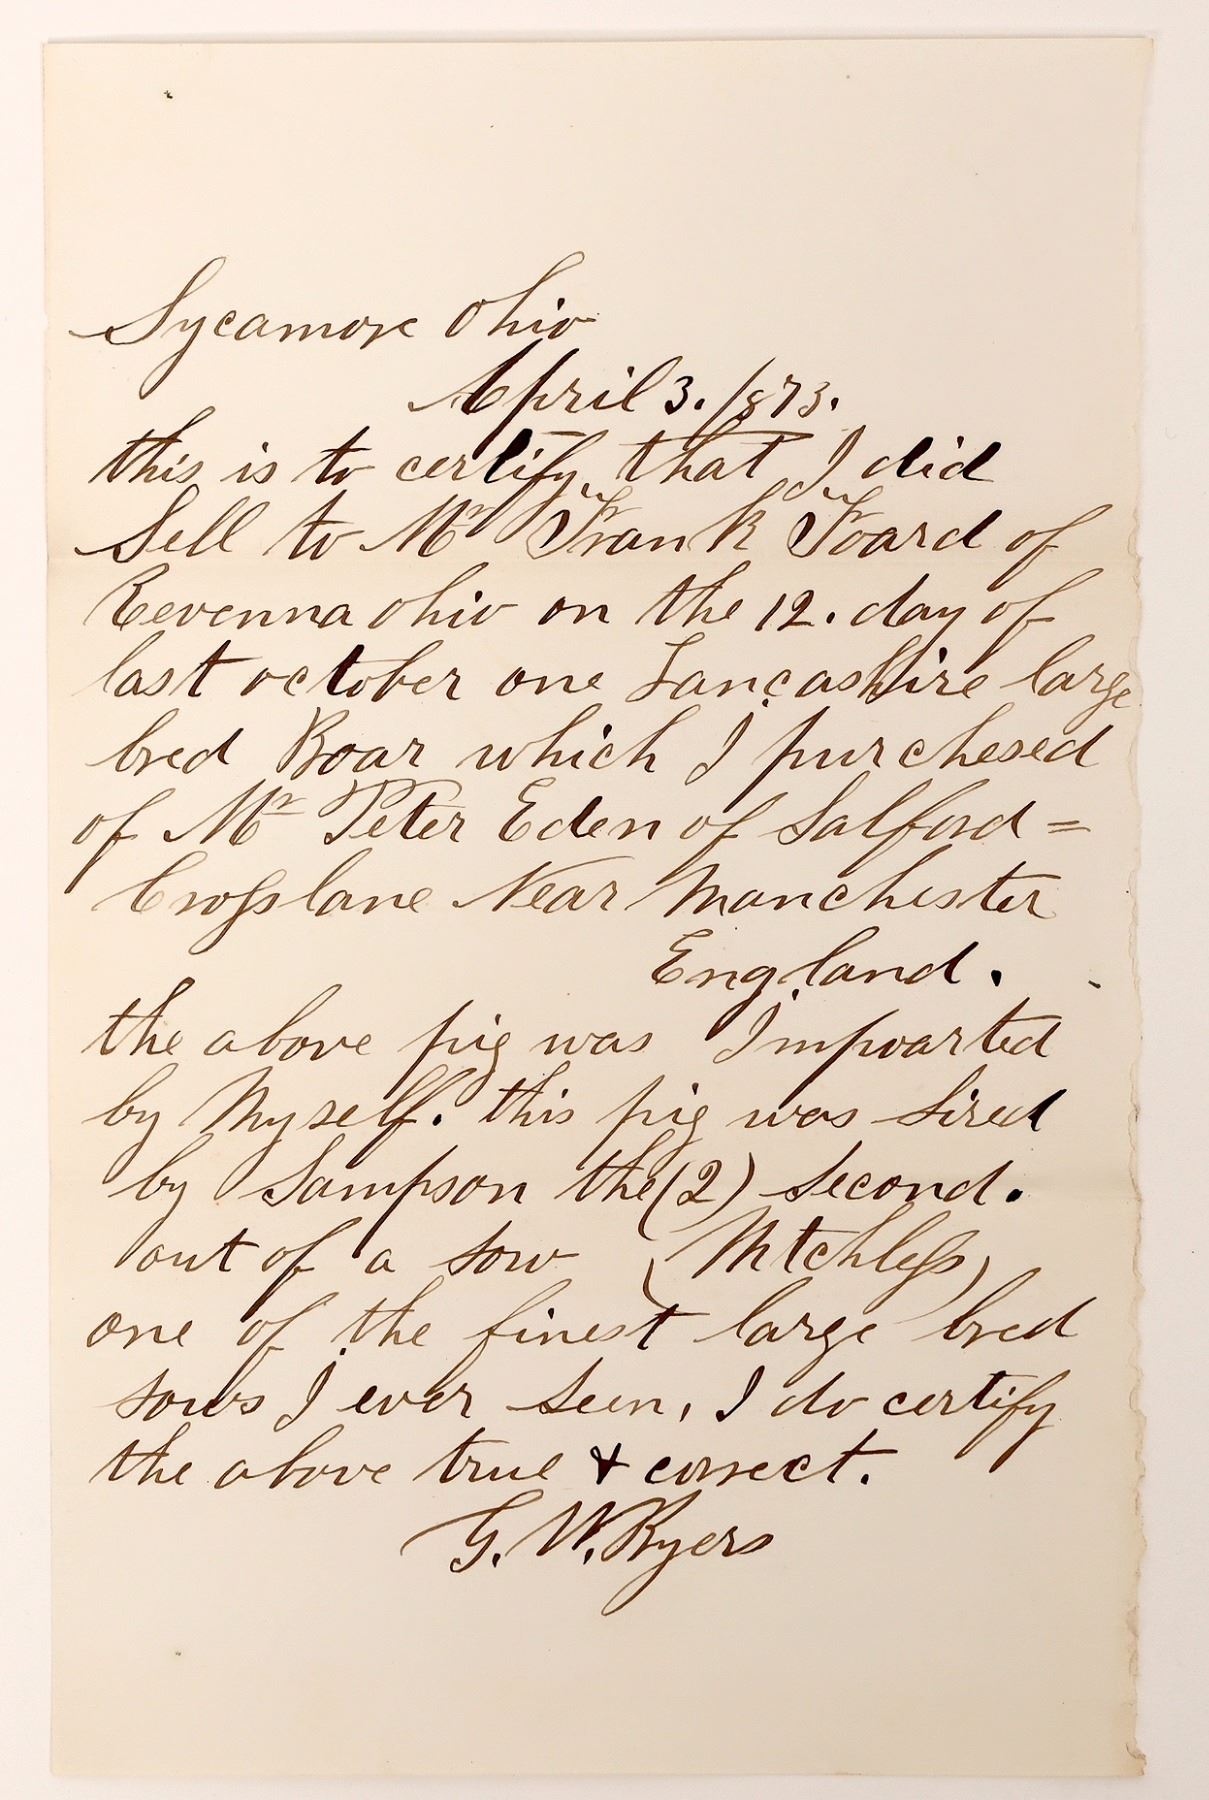 Sycamore Ohio
April 3. 1873.
this is to certify that I did
Sell to Mr Frank Foard of
Revenna ohio on the 12. day of
last october one Lancashire large
bred Boar which I purchesed
of Mr Peter Eden of Salford =
Crosslane Near Manchester
England.
the above pig was Impoarted
by Myself. this pig was Sired
by Sampson the (2) Second.
out of a sow (Mtchless)
one of the finest large bred
sows I ever seen, I do certify
the above true & correct.
G. W. Ryers